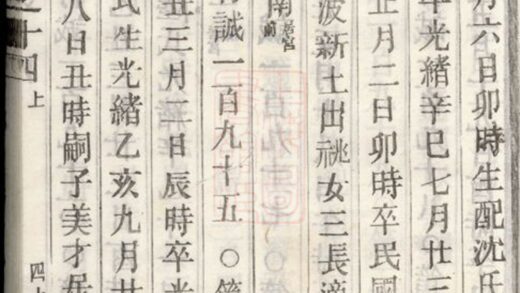 月六日卯時生配沈氏
年光緒辛巳七月廿三
正月二日卯時卒民國
波新土出祧女三長適
南
誠一百九十五〇第
丑三月二日辰時卒光
氏生光緒乙亥九月廿
八日丑時嗣子美才居
十四上 四十